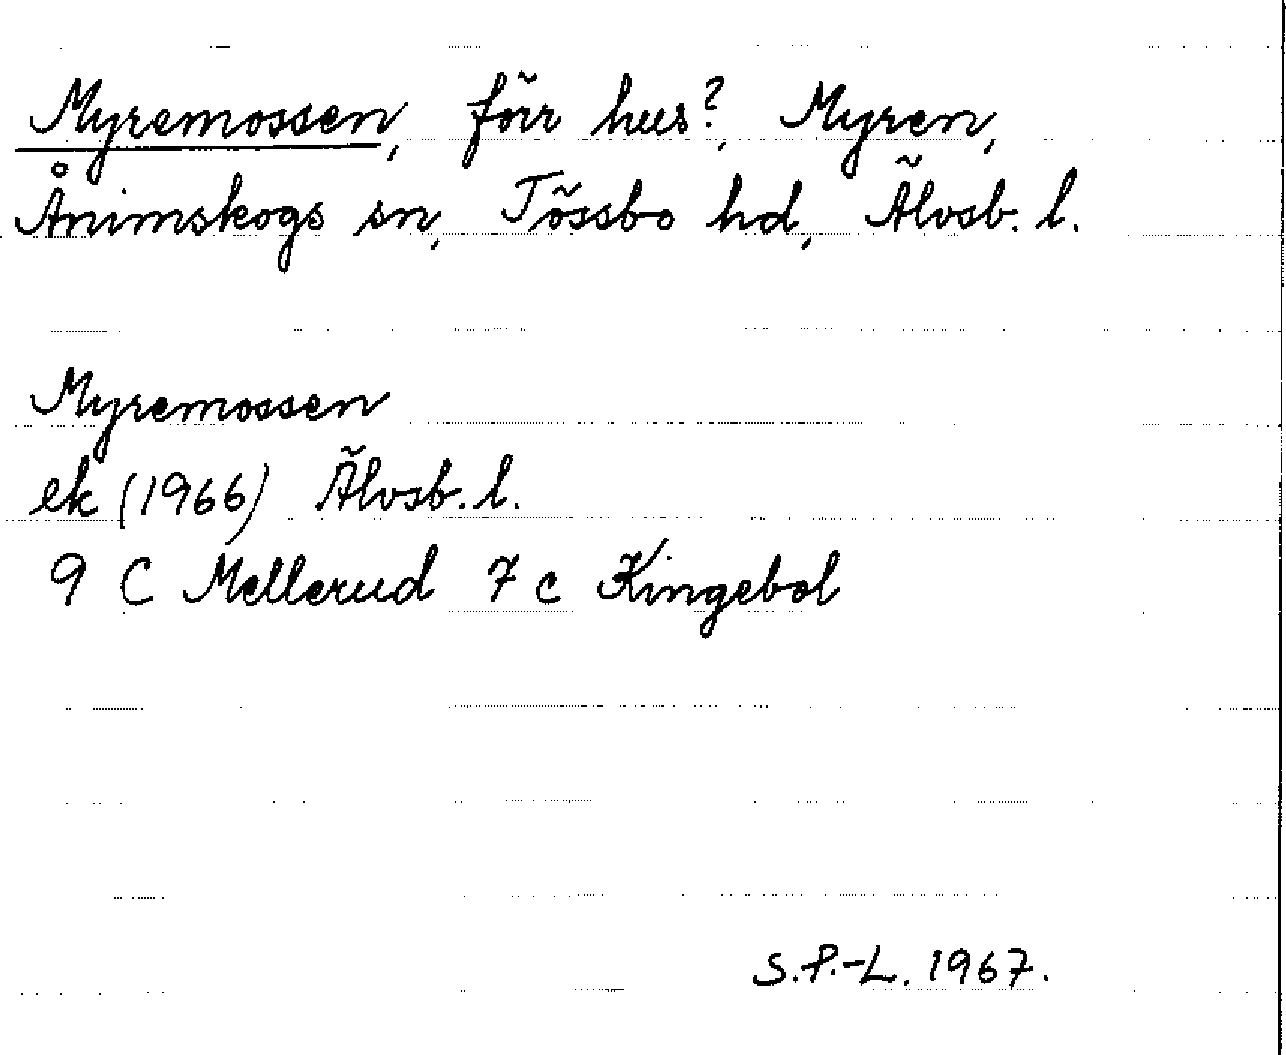 Myremossen, förr hus?, Myren,
Ånimskogs sn, Tössbo hd, Älvsb. l.
Myremossen
ek (1966) Älvsb. l.
9 C Mellerud 7 c Kingebol
S.P.-L. 1967.